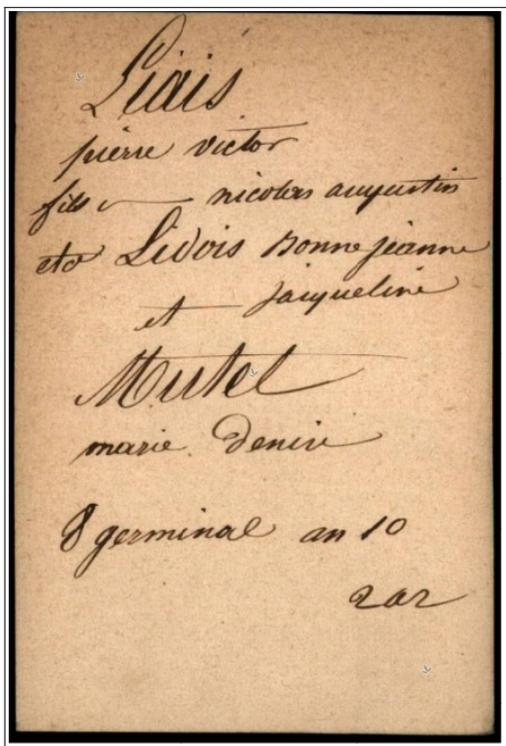 Liais
pierre victor
fils nicolas augustin
et Lidois bonne jeanne
jacqueline
et
Mutel
marie denise
8 germinal an 10
202